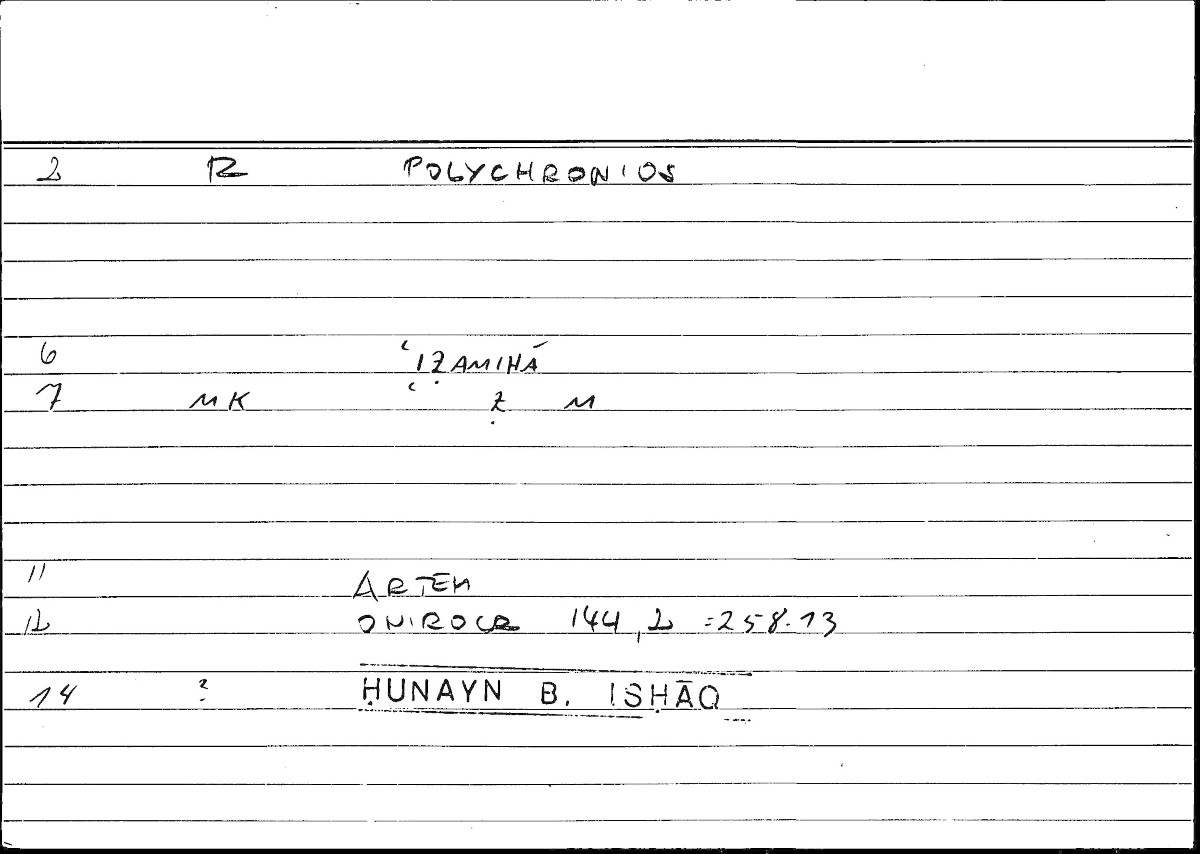 2 R POLYCHRONIOS
6 ʿIẒAMIHĀ
7 MK ʿ Ẓ M
11 ARTEM
12 ONIROCR 144,2 =258.13
14 ? ḤUNAYN B. ISḤĀQ